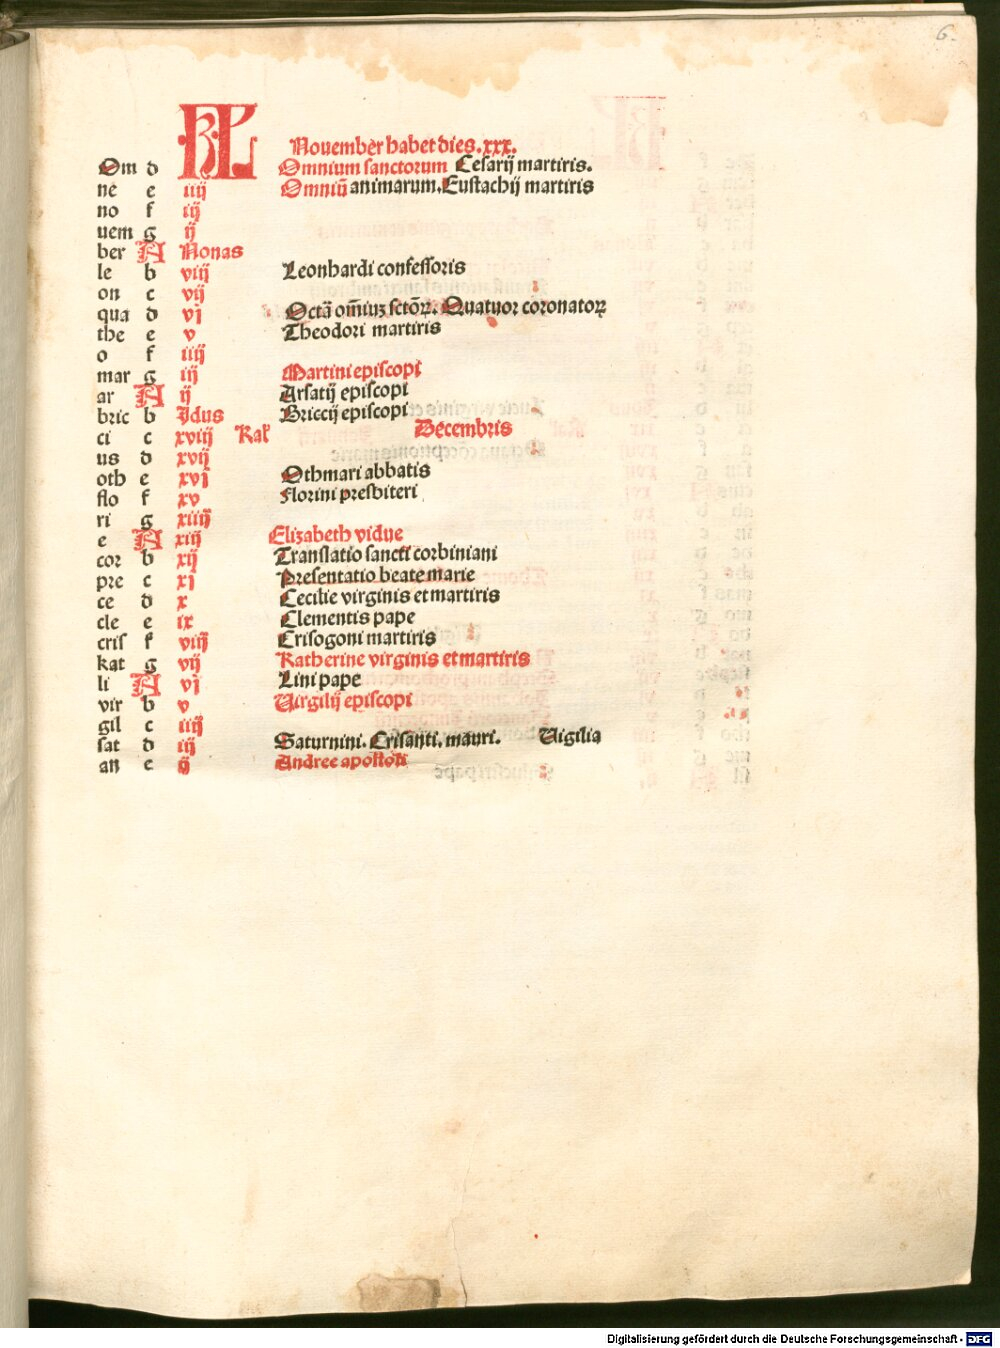 6.
KL November habet dies .xxx.
Om d Omnium sanctorum Cesarij martiris.
ne e iiij Omniū animarum. Eustachij martiris
no f iij
uem g ij
ber A Nonas
le b viij Leonhardi confessoris
on c vij
qua d vj Octā om̄iuʒ sctōꝝ. Quatuor coronatoꝝ
the e v Theodori martiris
o f iiij
mar g iij Martini episcopi
ar A ij Arsatij episcopi
bric b Idus Briccij episcopi
ci c xviij Kal̄ Decembris
us d xvij
oth e xvj Othmari abbatis
flo f xv Florini presbiteri
ri g xiiij
e A xiij Elizabeth vidue
cor b xij Translatio sancti corbiniani
pre c xj Presentatio beate marie
ce d x Cecilie virginis et martiris
cle e ix Clementis pape
cris f viij Crisogoni martiris
kat g vij Katherine virginis et martiris
li A vj Lini pape
vir b v Uirgilij episcopi
gil c iiij
sat d iij Saturnini. Crisanti. mauri. Uigilia
an e ij Andree apostoli
Digitalisierung gefördert durch die Deutsche Forschungsgemeinschaft - DFG